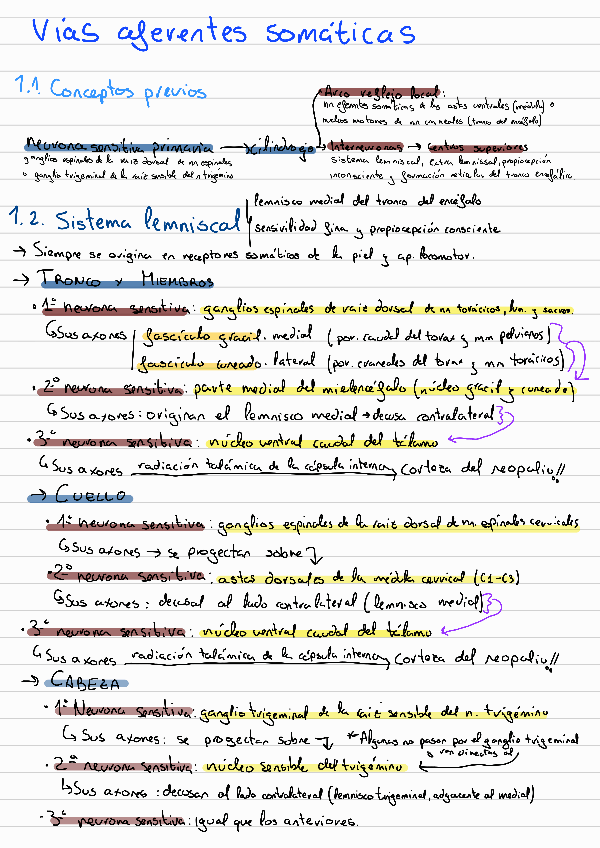 Vías aferentes somáticas
1.1. Conceptos previos
Arco reflejo local:
nn eferentes somáticas de las astas ventrales (médula) o
núcleos motores de nn craneales (tronco del encéfalo)
Neurona sensitiva primaria → cilindroeje → Interneuronas → Centros superiores
ganglios espinales de la raíz dorsal de nn espinales
o ganglio trigeminal de la raíz sensible del n trigémino
Sistema lemniscal, extra lemniscal, propiocepción
inconsciente y formación reticular del tronco encefálico.
1.2. Sistema lemniscal
lemnisco medial del tronco del encéfalo
sensivilidad fina y propiocepción consciente
→ Siempre se origina en receptores somáticos de la piel y ap. locomotor.
→ TRONCO Y MIEMBROS
· 1ª neurona sensitiva: ganglios espinales de raíz dorsal de nn torácicos, lum. y sacros.
↳ Sus axones
fascículo gracil. medial (por. caudal del torax y mm pelvianos)
fascículo cuneado. lateral (por. craneales del torax y mm torácicos)
· 2ª neurona sensitiva: parte medial del mielencéfalo (núcleo gracil y cuneado)
↳ Sus axones: originan el lemnisco medial → decusa contralateral
· 3ª neurona sensitiva: núcleo ventral caudal del tálamo
↳ Sus axones radiación talámica de la cápsula interna → Corteza del neopalio!!
→ CUELLO
· 1ª neurona sensitiva: ganglios espinales de la raíz dorsal de nn. epinales cervicales
↳ Sus axones → se proyectan sobre
2ª neurona sensitiva: astas dorsales de la médula cervical (C1-C3)
↳ Sus axones: decusan al lado contralateral (lemnisco medial)
· 3ª neurona sensitiva: núcleo ventral caudal del tálamo
↳ Sus axones radiación talámica de la cápsula interna → Corteza del neopalio!!
→ CABEZA
· 1ª Neurona sensitiva: ganglio trigeminal de la raíz sensible del n. trigémino
↳ Sus axones: se proyectan sobre * Algunas no pasan por el ganglio trigeminal
y van directas al
· 2ª neurona sensitiva: núcleo sensible del trigémino
↳ Sus axones: decusan al lado contralateral (lemnisco trigeminal, adyacente al medial)
· 3ª neurona sensitiva: igual que los anteriores.